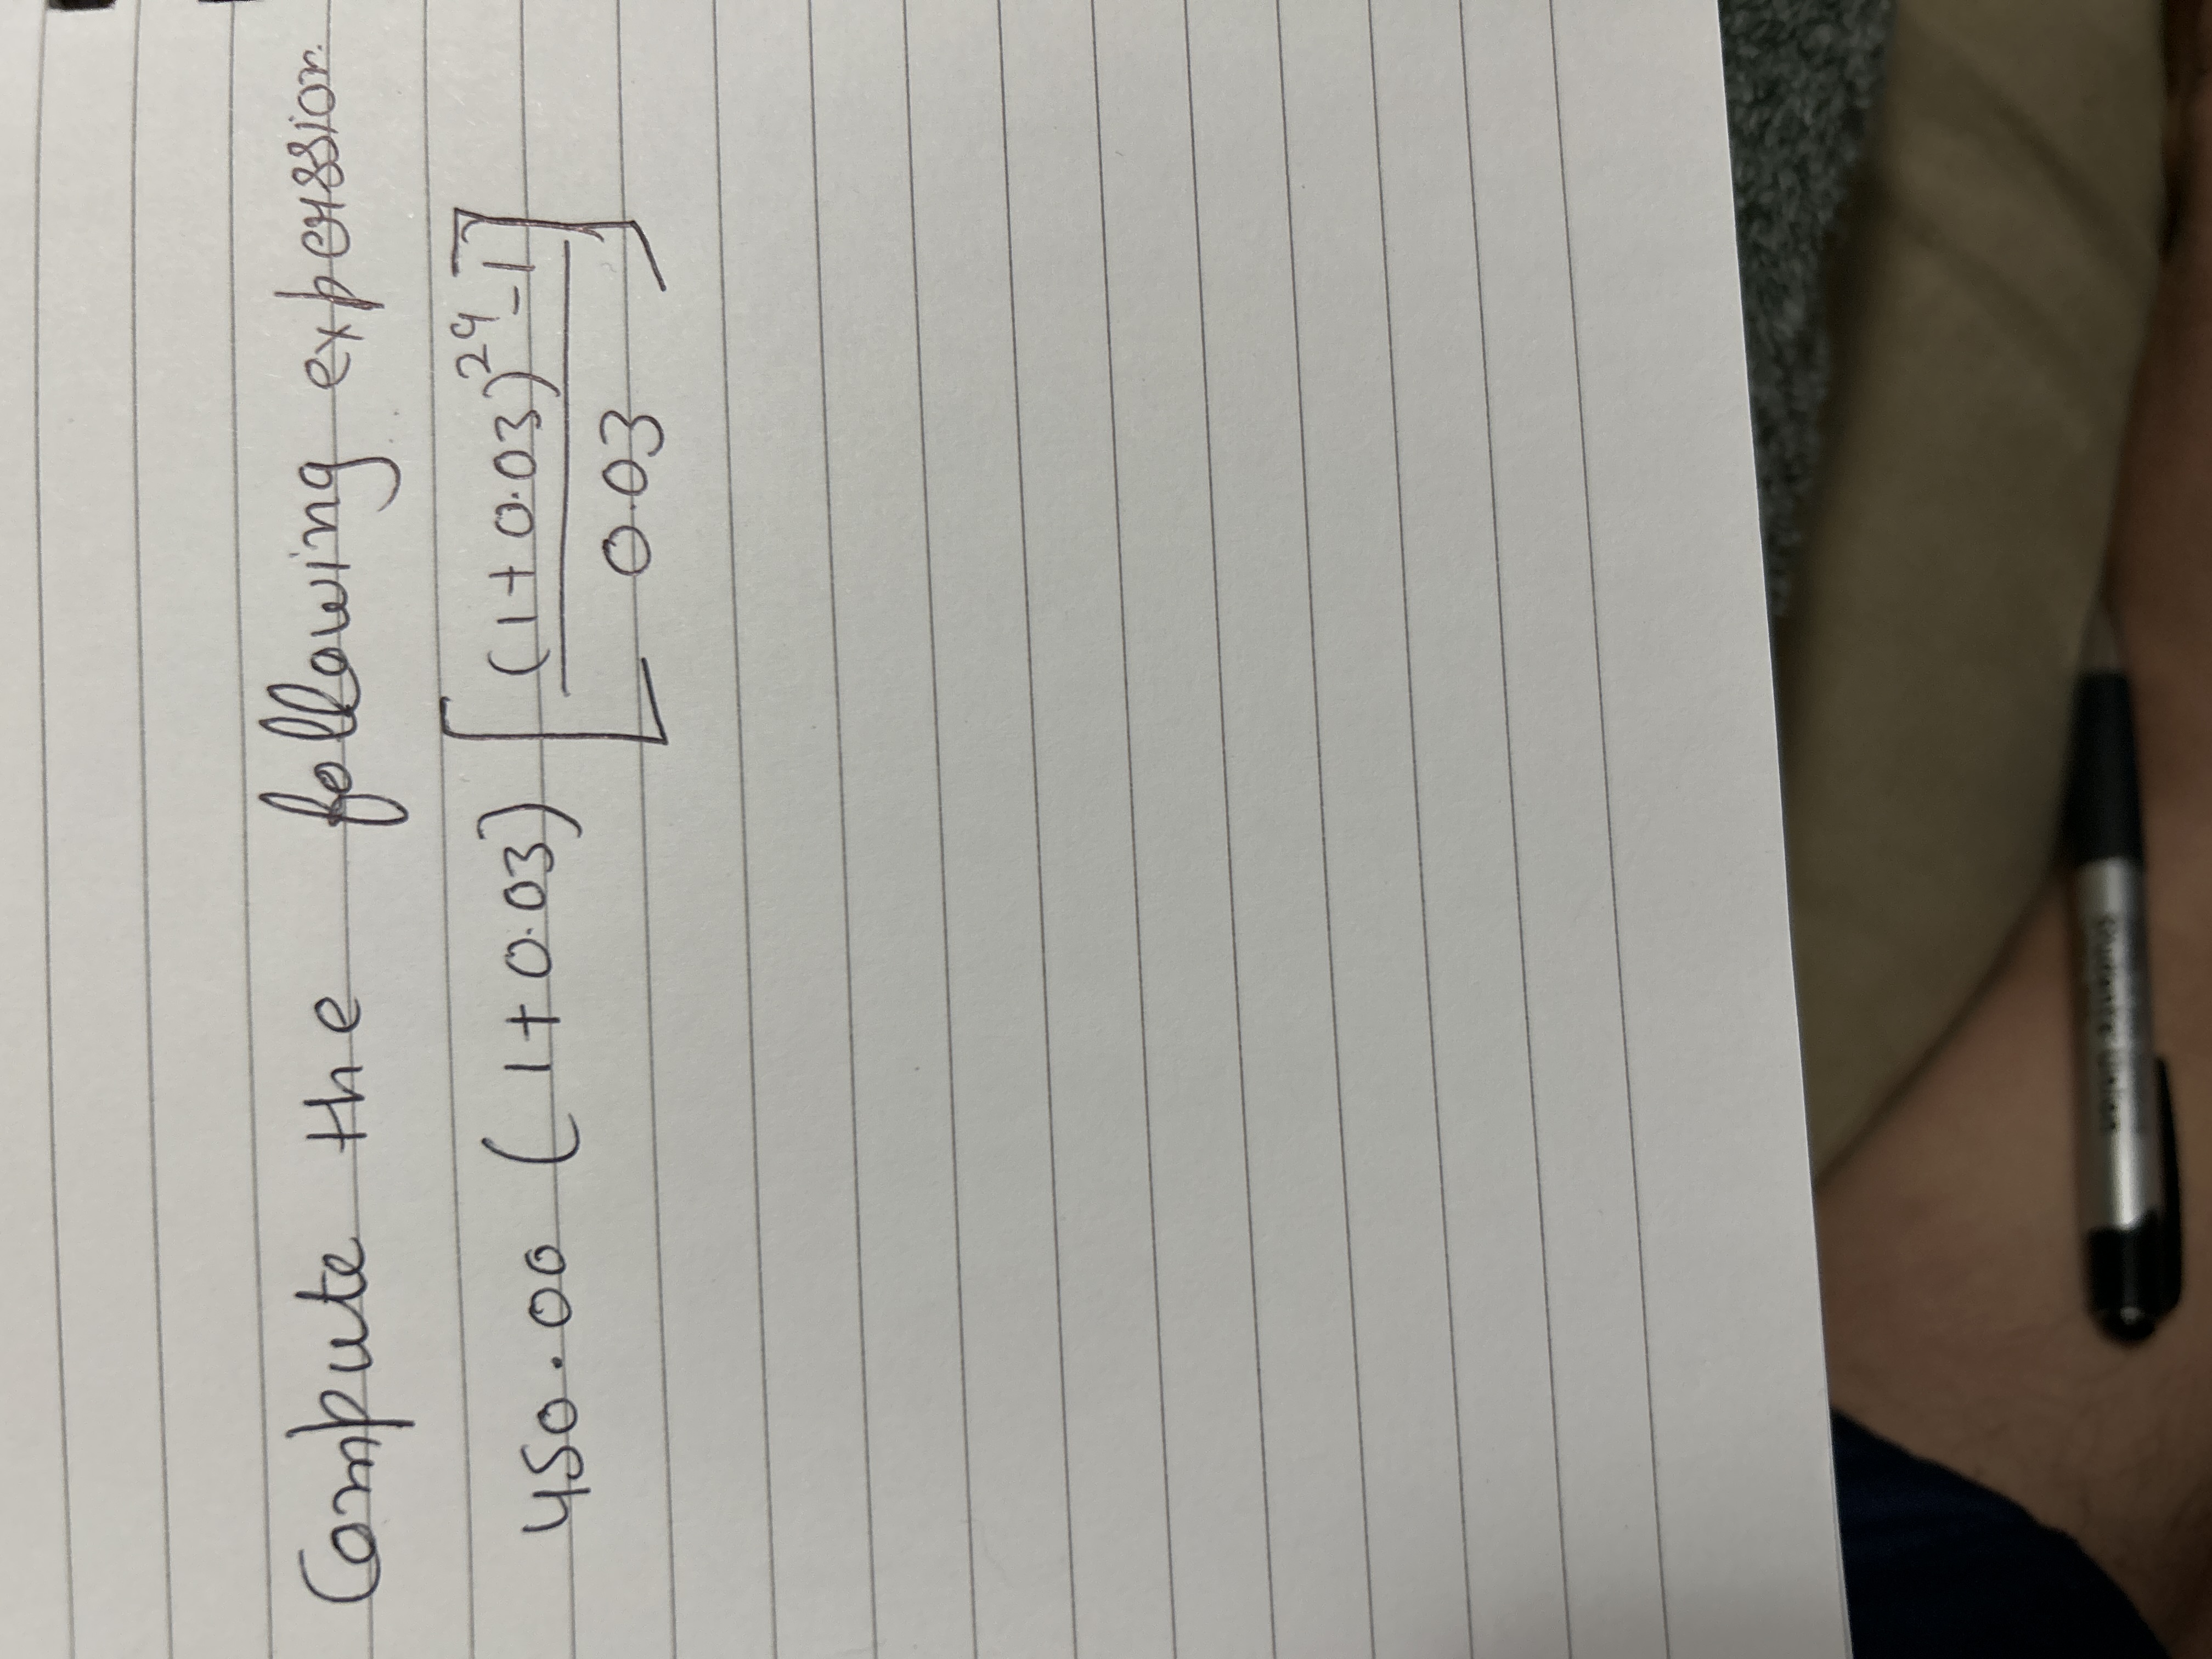 Compute the following expression
450.00 (1+0.03) [(1+0.03)^24 - 1]
0.03